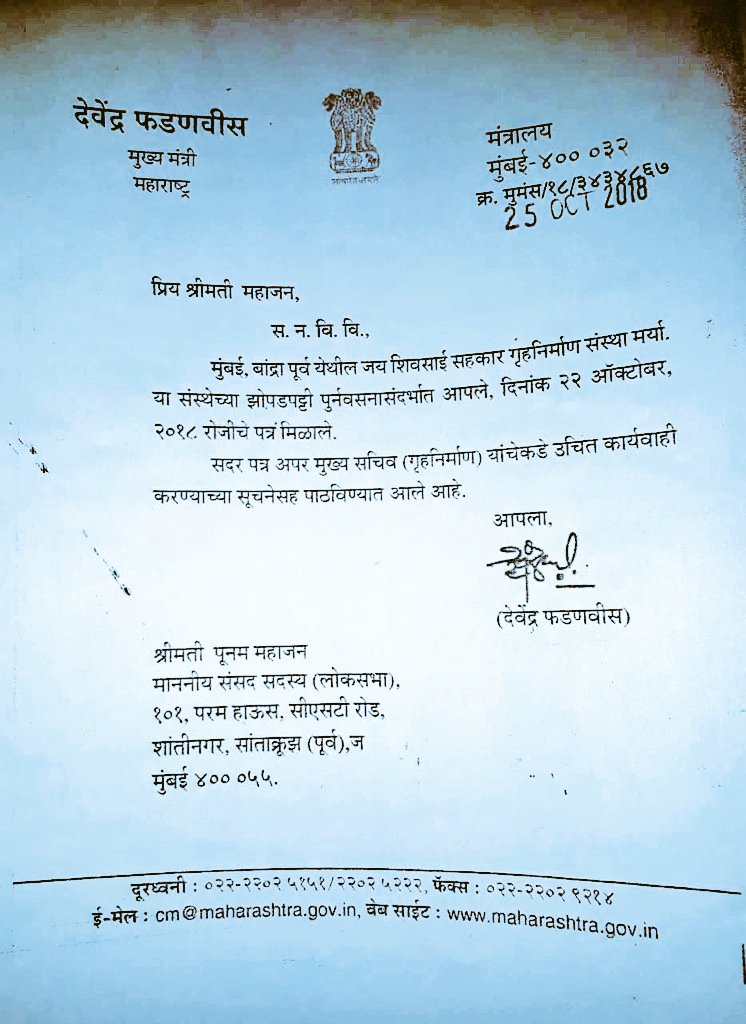 देवेंद्र फडणवीस
मुख्य मंत्री
महाराष्ट्र
सत्यमेव जयते
मंत्रालय
मुंबई-४०० ०३२
क्र. मुमंस/१८/३४३४८६७
25 OCT 2018
प्रिय श्रीमती महाजन,
स. न. वि. वि.,
मुंबई, बांद्रा पूर्व येथील जय शिवसाई सहकार गृहनिर्माण संस्था मर्या.
या संस्थेच्या झोपडपट्टी पुर्नवसनासंदर्भात आपले, दिनांक २२ ऑक्टोबर,
२०१८ रोजीचे पत्रं मिळाले.
सदर पत्र अपर मुख्य सचिव (गृहनिर्माण) यांचेकडे उचित कार्यवाही
करण्याच्या सूचनेसह पाठविण्यात आले आहे.
आपला,
(देवेंद्र फडणवीस)
श्रीमती पूनम महाजन
माननीय संसद सदस्य (लोकसभा),
१०१, परम हाऊस, सीएसटी रोड,
शांतीनगर, सांताक्रूझ (पूर्व),ज
मुंबई ४०० ०५५.
दूरध्वनी : ०२२-२२०२ ५१५१/२२०२ ५२२२, फॅक्स : ०२२-२२०२ ९२१४
ई-मेल : cm@maharashtra.gov.in, वेब साईट : www.maharashtra.gov.in